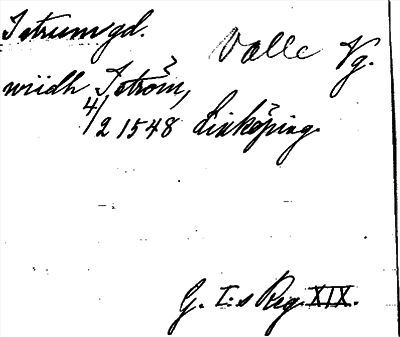 Istrumgd. Valle Vg.
widh Iström,
4/2 1548 Linköping.
G. I:s Reg. XIX.